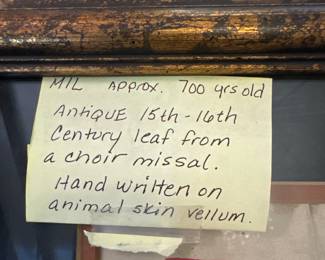 MIL Approx. 700 yrs old
Antique 15th - 16th
Century leaf from
a choir missal.
Hand written on
animal skin vellum.